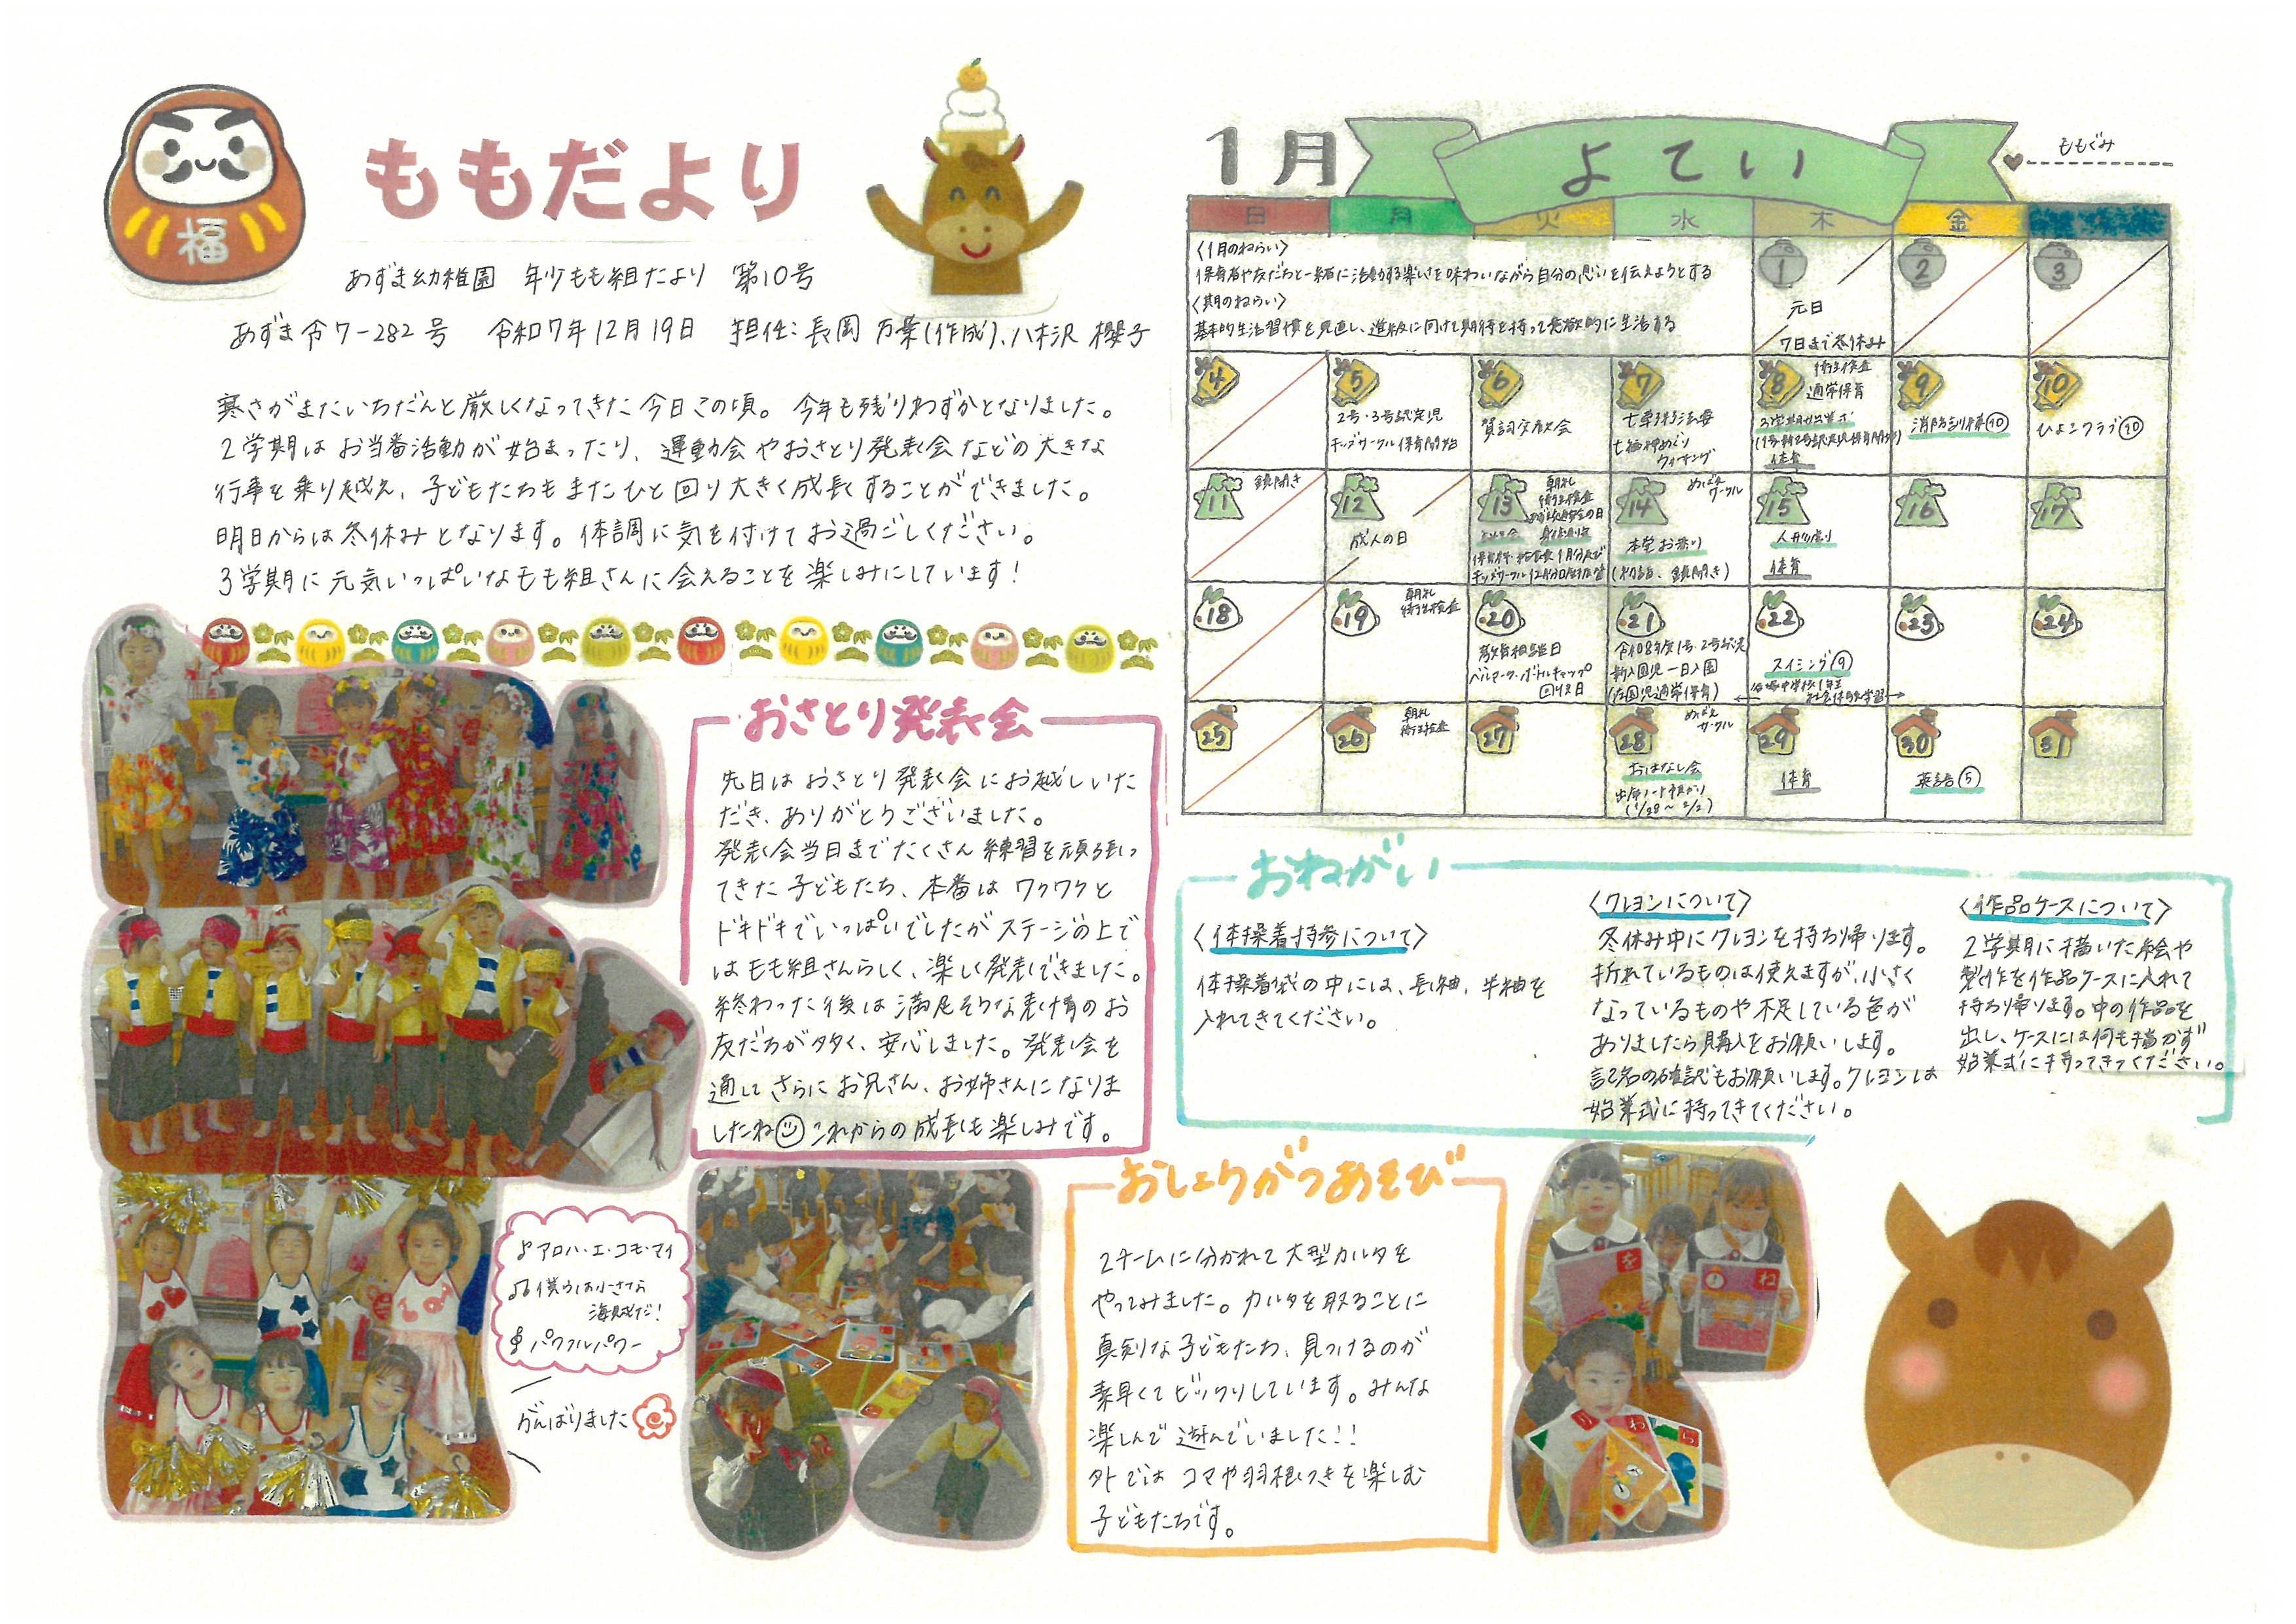 ももだより
福
あずま幼稚園 年少もも組だより 第10号
あずま令7-282号 令和7年12月19日 担任:長岡 万葉(作成)、八木沢 櫻子
寒さがまたいちだんと厳しくなってきた今日この頃。今年も残りわずかとなりました。
2学期はお当番活動が始まったり、運動会やおさとり発表会などの大きな
行事を乗り越え、子どもたちもまたひと回り大きく成長することができました。
明日からは冬休みとなります。体調に気を付けてお過ごしください。
3学期に元気いっぱいなもも組さんに会えることを楽しみにしています!
おさとり発表会
先日はおさとり発表会にお越しいた
だき、ありがとうございました。
発表会当日までたくさん練習を頑張っ
てきた子どもたち、本番はワクワクと
ドキドキでいっぱいでしたがステージの上で
はもも組さんらしく、楽しく発表できました。
終わった後は満足そうな表情のお
友だちが多く、安心しました。発表会を
通してさらにお兄さん、お姉さんになりま
したね これからの成長も楽しみです。
♪アロハ・エ・コモ・マイ
♫僕らは小さな
海賊だ!
パワフルパワー
がんばりました
おしょうがつあそび
2チームに分かれて大型カルタを
やってみました。カルタを取ることに
真剣な子どもたち、見つけるのが
素早くてビックリしています。みんな
楽しんで遊んでいました!!
外ではコマや羽根つきを楽しむ
子どもたちです。
を
ね
り
わ
ら
1月
よてい
ももぐみ
日 月 火 水 木 金
〈1月のねらい〉
保育者や友だちと一緒に活動する楽しさを味わいながら自分の思いを伝えようとする
〈期のねらい〉
基本的生活習慣を見直し、進級に向けて期待を持って意欲的に生活する
1
元日
7日まで冬休み
2
3
4
5
2号・3号認定児
キッズサークル保育開始
6
賀詞交歓会
7
七草
七福神めぐり
ウォーキング
8
衛生検査
通常保育
3学期始業式
(1号・新2号認定児保育開始)
体育
9
消防訓練⑩
10
ひよこクラブ⑩
11
鏡開き
12
成人の日
13
朝礼
衛生検査
あずま交通安全の日
身体測定
保育料・給食費1月分及び
キッズサークル12月分口座振替
14
めばえ
サークル
本堂お参り
(初詣、鏡開き)
15
人形劇
体育
16
17
18
19
朝礼
衛生検査
20
教育相談日
ベルマーク・ボトルキャップ
回収日
21
令和8年度1号・2号認定
新入園児一日入園
(在園児通常保育)
22
スイミング⑨
中学校1年生
社会体験学習
23
24
25
26
朝礼
衛生検査
27
28
めばえ
サークル
おはなし会
出席ノート預かり
(1/28~2/2)
29
体育
30
英語⑤
31
おねがい
〈体操着持参について〉
体操着袋の中には、長袖、半袖を
入れてきてください。
〈クレヨンについて〉
冬休み中にクレヨンを持ち帰ります。
折れているものは使えますが、小さく
なっているものや不足している色が
ありましたら購入をお願いします。
記名の確認もお願いします。クレヨンは
始業式に持ってきてください。
〈作品ケースについて〉
2学期に描いた絵や
製作を作品ケースに入れて
持ち帰ります。中の作品を
出し、ケースには何も描かず
始業式に持ってきてください。